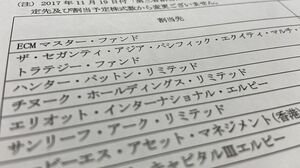 (注) 2017 年 11 月 19 日付「第三者割
定先及び割当予定株式数から変更ございません。
割当先
ECM マスター・ファンド
ザ・セガンティ・アジア・パシフィック・エクイティ・マルチ・
トラテジー・ファンド
ハンター・パットン・リミテッド
チヌーク・ホールディングス・リミテッド
エリオット・インターナショナル・エルピー
サンリーフ・アーク・リミテッド
ービーエス・アセット・マネジメント(香港
キャピタルⅢエルピー